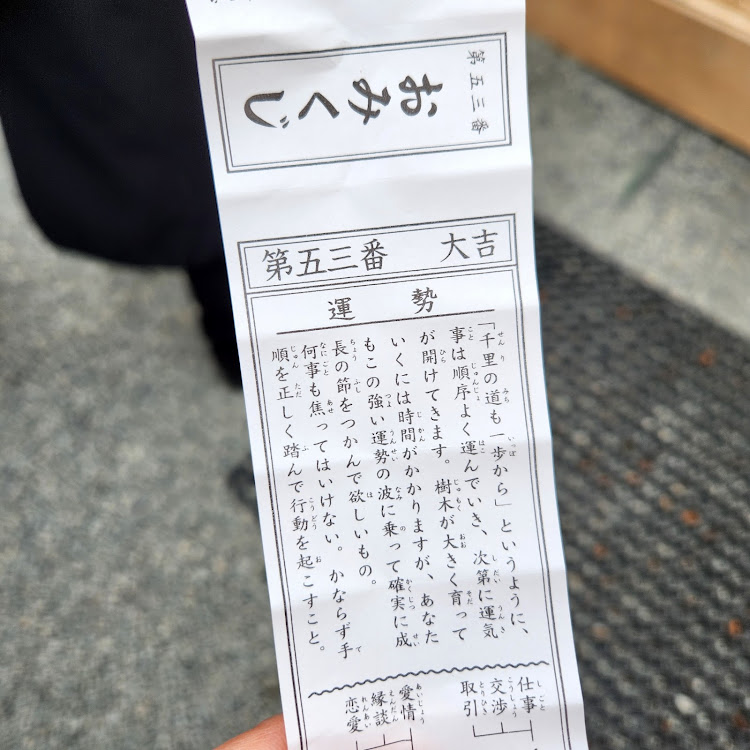 第五三番
おみくじ
第五三番 大吉
運勢
「千里の道も一歩から」というように、
事は順序よく運んでいき、次第に運気
が開けてきます。樹木が大きく育って
いくには時間がかかりますが、あなた
もこの強い運勢の波に乗って確実に成
長の節をつかんで欲しいもの。
何事も焦ってはいけない。かならず手
順を正しく踏んで行動を起こすこと。
仕事
交渉
取引
愛情
縁談
恋愛